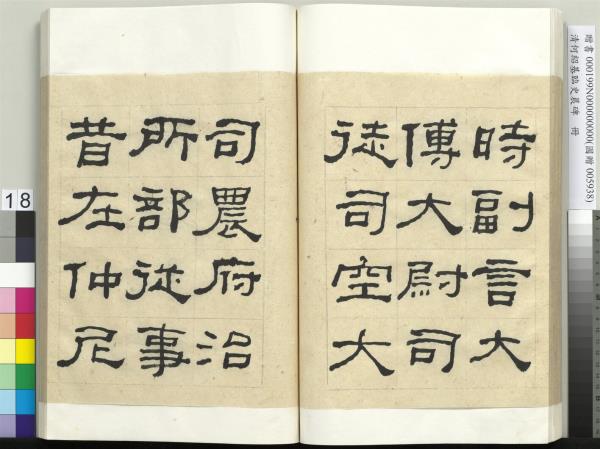 時副言大
傅大尉司
徒司空大
司農府治
所部從事
昔在仲尼
贈書 000199N000000000(國贈 005938)
清何紹基臨史晨碑 冊
18